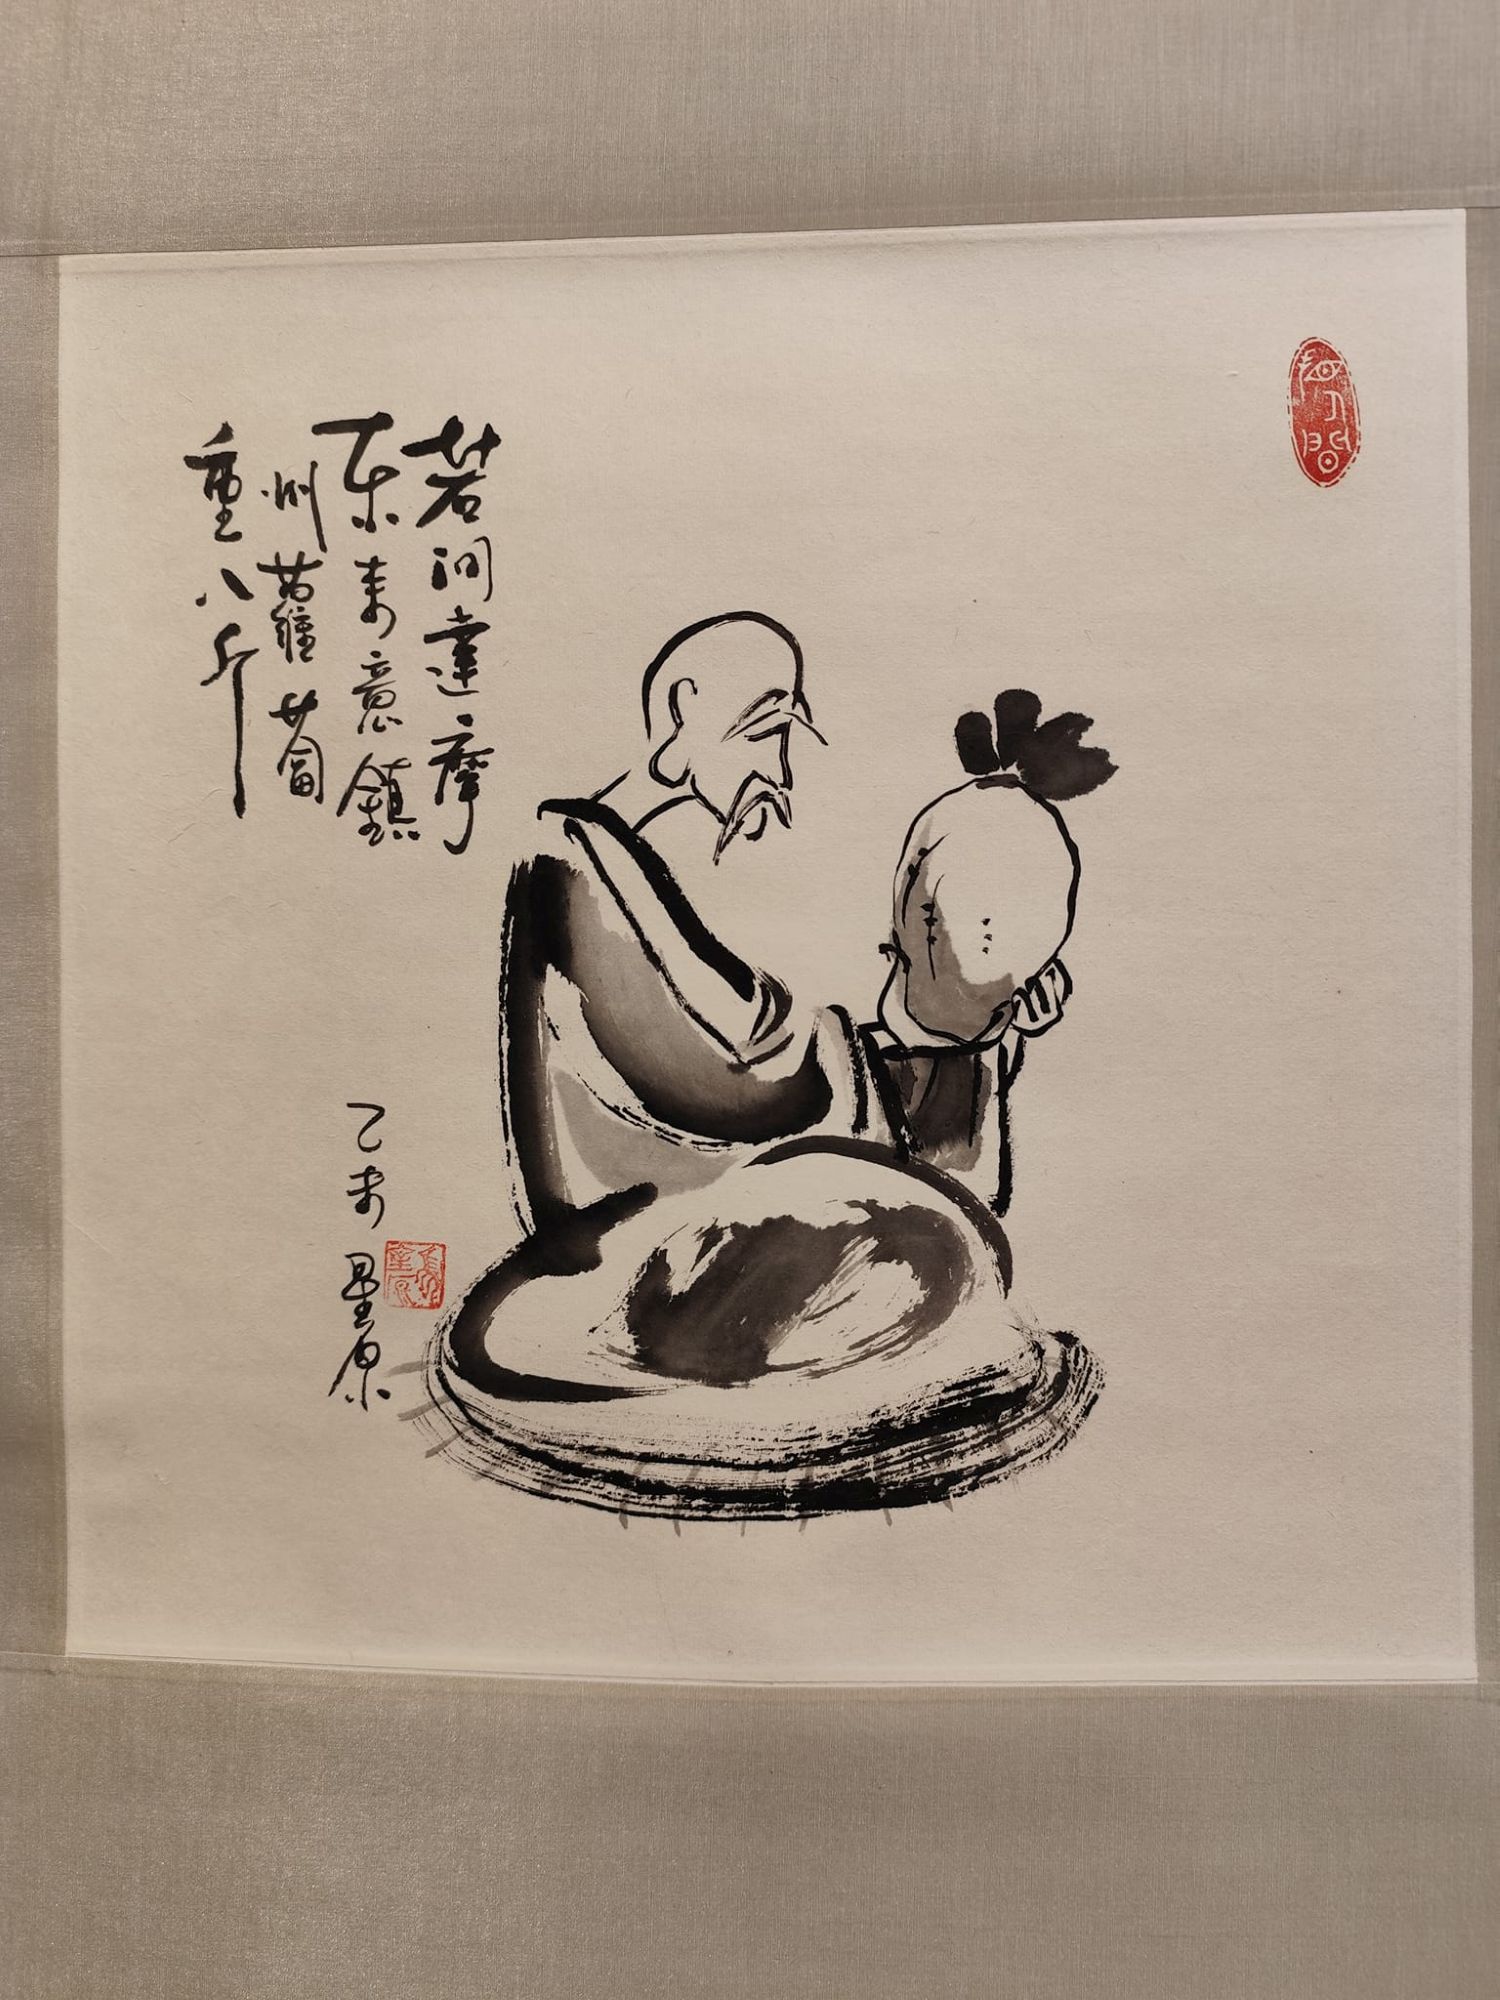 若问達摩
東来意鎮
州蘿蔔
重八斤
乙未星原